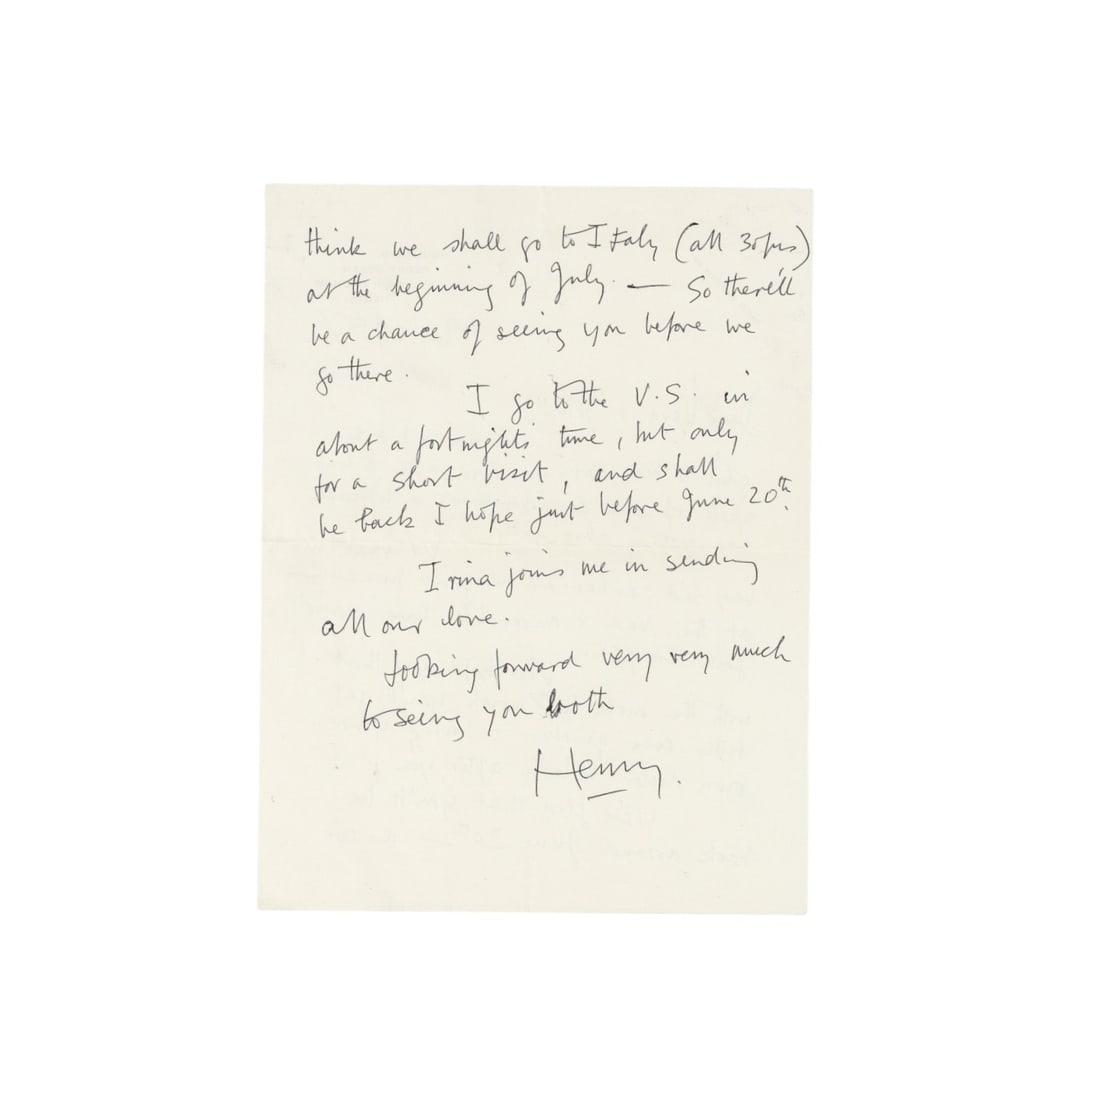 think we shall go to Italy (all 3 of us)
at the beginning of July. — So there'll
be a chance of seeing you before we
go there.
I go to the U.S. in
about a fortnights time, but only
for a short visit, and shall
be back I hope just before June 20th.
Irina joins me in sending
all our love.
Looking forward very very much
to seing you both
Henry.